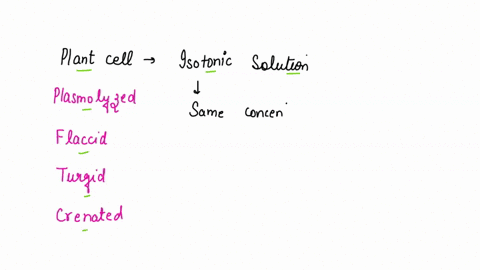 Plant cell → Isotonic Solution
↓
Plasmolyzed
Same concen
Flaccid
Turgid
Crenated